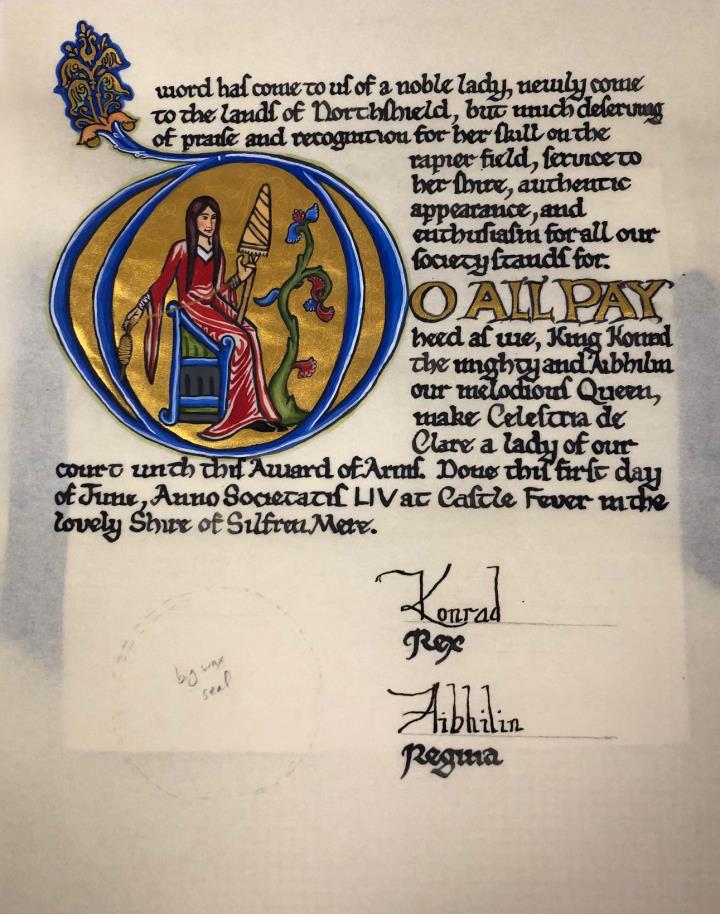 word has come to us of a noble lady, newly come
to the lands of Northshield, but much deserving
of praise and recognition for her skill on the
rapier field, service to
her shire, authentic
appearance, and
enthusiasm for all our
society stands for.
O ALL PAY
heed as we, King Konrad
the mighty and Aibhilin
our melodious Queen,
make Celestria de
Clare a lady of our
court with this Award of Arms. Done this first day
of June, Anno Societatis LIV at Castle Fever in the
lovely Shire of Silfren Mere.
Konrad
Rex
Aibhilin
Regina
big wax
seal